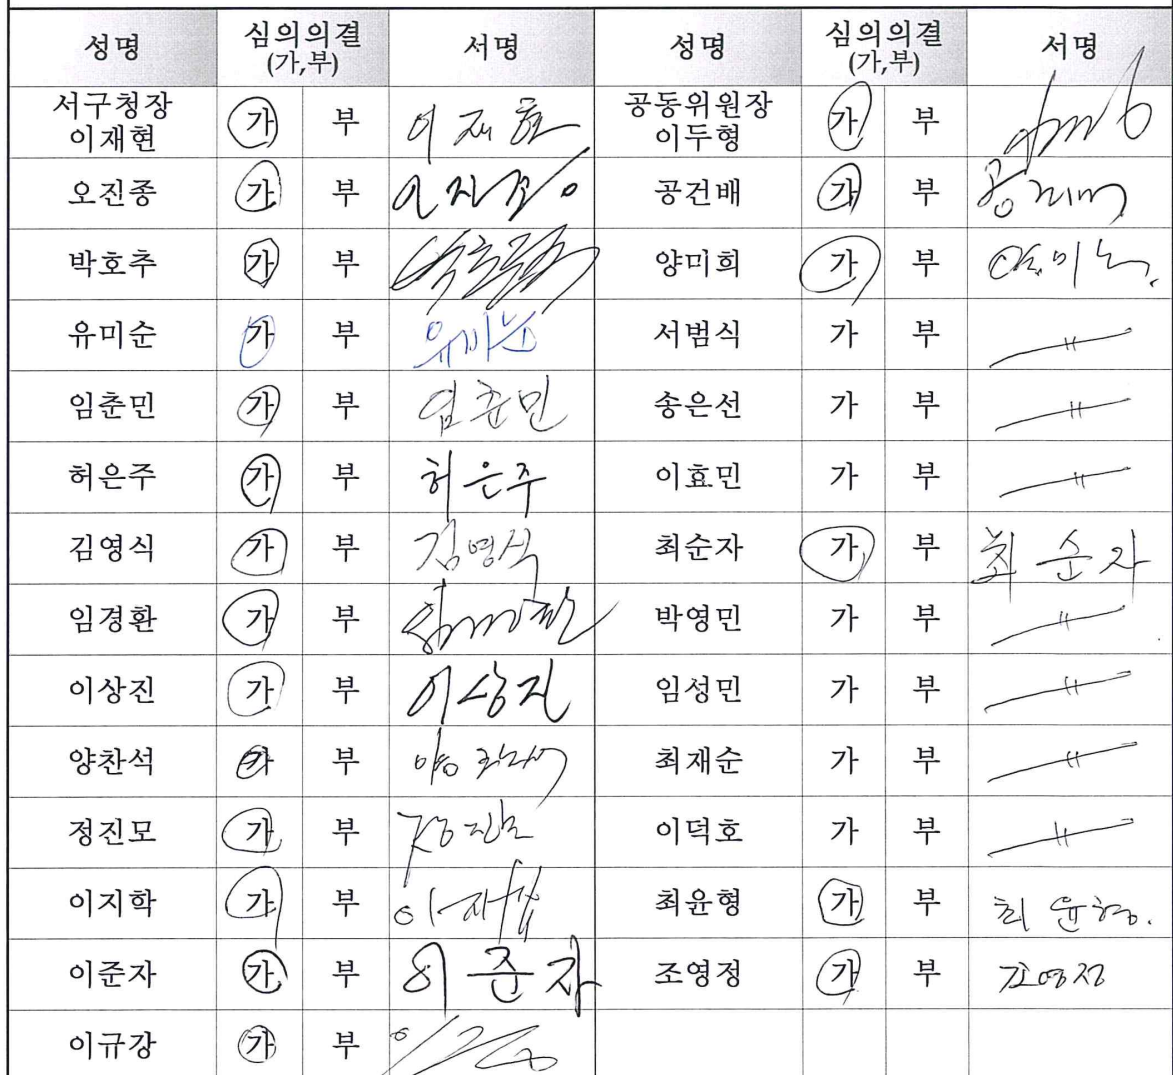 성명 심의의결 서명 성명 심의의결 서명
(가,부) (가,부)
서구청장 가 부 이재현 공동위원장 가 부
이재현 이두형
오진종 가 부 오진종 공건배 가 부 공건배
박호추 가 부 양미희 가 부 양미희
유미순 가 부 유미순 서범식 가 부
임춘민 가 부 임춘민 송은선 가 부
허은주 가 부 허은주 이효민 가 부
김영식 가 부 김영식 최순자 가 부 최순자
임경환 가 부 박영민 가 부
이상진 가 부 이상진 임성민 가 부
양찬석 가 부 양찬석 최재순 가 부
정진모 가 부 정진모 이덕호 가 부
이지학 가 부 이지학 최윤형 가 부 최윤형.
이준자 가 부 이준자 조영정 가 부 조영정
이규강 가 부